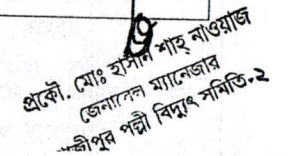 প্রকৌ. মোঃ হাসান শাহ্ নাওয়াজ
জেনারেল ম্যানেজার
পল্লী বিদ্যুৎ সমিতি-২